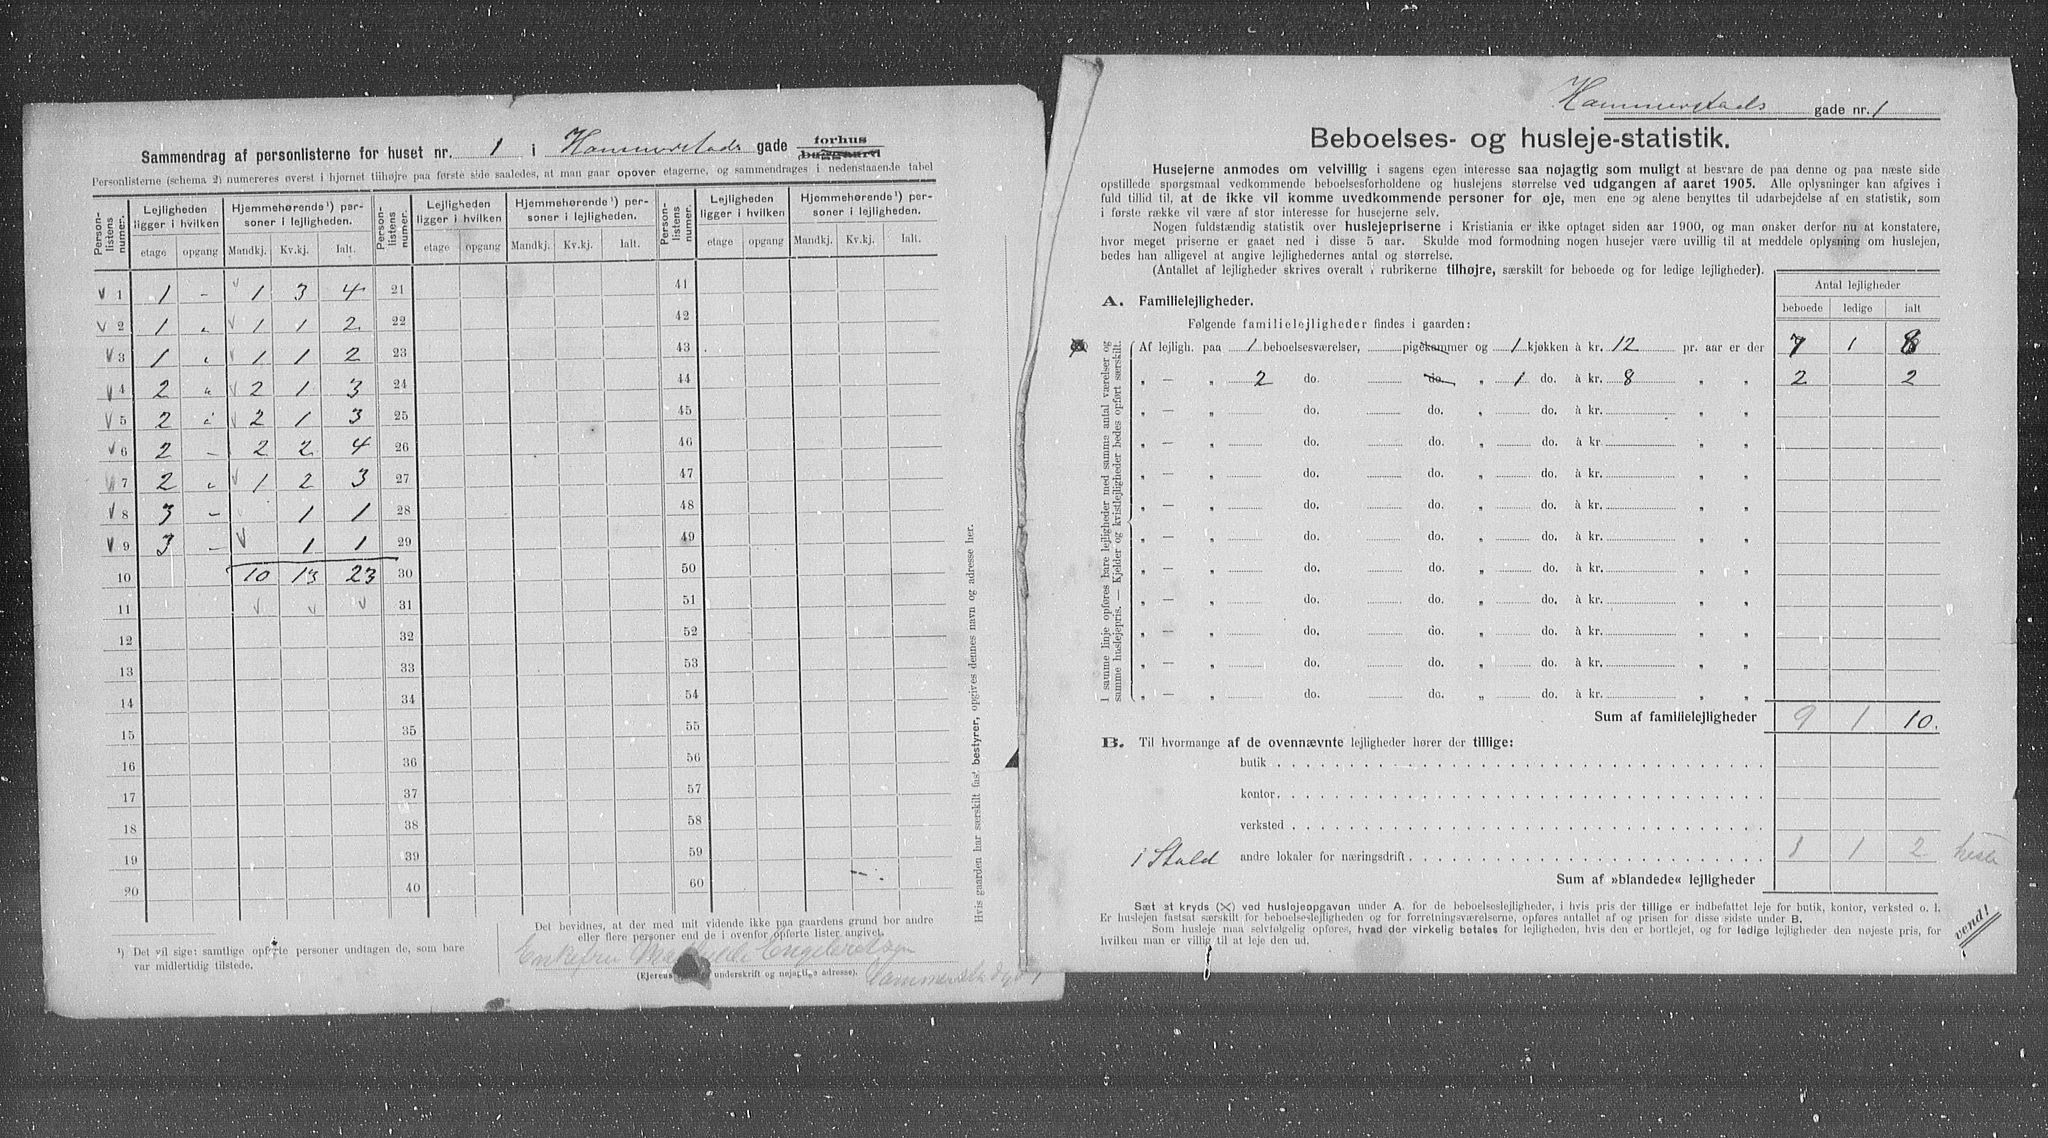 Sammendrag af personlisterne for huset nr. 1 i Hammerstads gade forhus
baggaard
Personlisterne (schema 2) numereres øverst i hjørnet tilhøjre paa første side saaledes, at man gaar opover etagerne, og sammendrages i nedenstaaende tabel
Person-listens numer. Lejligheden ligger i hvilken Hjemmehørende¹) per-soner i lejligheden. Person-listens numer. Lejligheden ligger i hvilken Hjemmehørende¹) per-soner i lejligheden. Person-listens numer. Lejligheden ligger i hvilken Hjemmehørende¹) per-soner i lejligheden.
etage opgang Mandkj. Kv.kj. Ialt. etage opgang Mandkj. Kv.kj. Ialt. etage opgang Mandkj. Kv.kj. Ialt.
v 1 1 - v 1 3 4 21 41
v 2 1 " v 1 1 2 22 42
v 3 1 " v 1 1 2 23 43
v 4 2 " v 2 1 3 24 44
v 5 2 " v 2 1 3 25 45
v 6 2 - 2 2 4 26 46
v 7 2 " v 1 2 3 27 47
v 8 3 - 1 1 28 48
v 9 3 - v 1 1 29 49
10 10 13 23 30 50
11 v v v 31 51
12 32 52
13 33 53
14 34 54
15 35 55
16 36 56
17 37 57
18 38 58
19 39 59
20 40 60
¹) Det vil sige: samtlige opførte personer undtagen de, som bare
var midlertidig tilstede.
Det bevidnes, at der med mit vidende ikke paa gaardens grund bor andre
eller flere personer end de i ovenfor opførte lister angivet.
Enkefru Mathilde Engebretsen
(Ejerens underskrift og nøjagtige adresse). Hammerstadgd 1
Hvis gaarden har særskilt fast bestyrer, opgives dennes navn og adresse her.
Hammerstads gade nr. 1
Beboelses- og husleje-statistik.
Husejerne anmodes om velvillig i sagens egen interesse saa nøjagtig som muligt at besvare de paa denne og paa næste side
opstillede spørgsmaal vedkommende beboelsesforholdene og huslejens størrelse ved udgangen af aaret 1905. Alle oplysninger kan afgives i
fuld tillid til, at de ikke vil komme uvedkommende personer for øje, men ene og alene benyttes til udarbejdelse af en statistik, som
i første række vil være af stor interesse for husejerne selv.
Nogen fuldstændig statistik over huslejepriserne i Kristiania er ikke optaget siden aar 1900, og man ønsker derfor nu at konstatere,
hvor meget priserne er gaaet ned i disse 5 aar. Skulde mod formodning nogen husejer være uvillig til at meddele oplysning om huslejen,
bedes han alligevel at angive lejlighedernes antal og størrelse.
(Antallet af lejligheder skrives overalt i rubrikerne tilhøjre, særskilt for beboede og for ledige lejligheder).
Antal lejligheder
beboede ledige ialt
A. Familielejligheder.
Følgende familielejligheder findes i gaarden:
I samme linje opføres bare lejligheder med samme antal værelser og
samme huslejepris. — Kjelder og kvistlejligheder bedes opført særskilt.
Af lejligh. paa 1 beboelsesværelser, pigekammer og 1 kjøkken à kr. 12 pr. aar er der 7 1 8
„ — „ 2 do. do. „ 1 do. à kr. 8 „ „ 2 2
„ — „ do. do. „ do. à kr. „ „
„ — „ do. do. „ do. à kr. „ „
„ — „ do. do. „ do. à kr. „ „
„ — „ do. do. „ do. à kr. „ „
„ — „ do. do. „ do. à kr. „ „
„ — „ do. do. „ do. à kr. „ „
„ — „ do. do. „ do. à kr. „ „
„ — „ do. do. „ do. à kr. „ „
„ — „ do. do. „ do. à kr. „ „
„ — „ do. do. „ do. à kr. „ „
Sum af familielejligheder 9 1 10.
B. Til hvormange af de ovennævnte lejligheder hører der tillige:
butik
kontor
verksted
1 Stald andre lokaler for næringsdrift 1 2 heste
Sum af »blandede« lejligheder
Sæt et kryds (X) ved huslejeopgaven under A. for de beboelseslejligheder, i hvis pris der tillige er indbefattet leje for butik, kontor, verksted o. l.
Er huslejen fastsat særskilt for beboelseslejligheden og for forretningsværelserne, opføres antallet af og prisen for disse sidste under B.
Som husleje maa selvfølgelig opføres, hvad der virkelig betales for lejligheden, hvis den er bortlejet, og for ledige lejligheder den nøjeste pris, for
hvilken man er villig til at leje den ud.
vend!